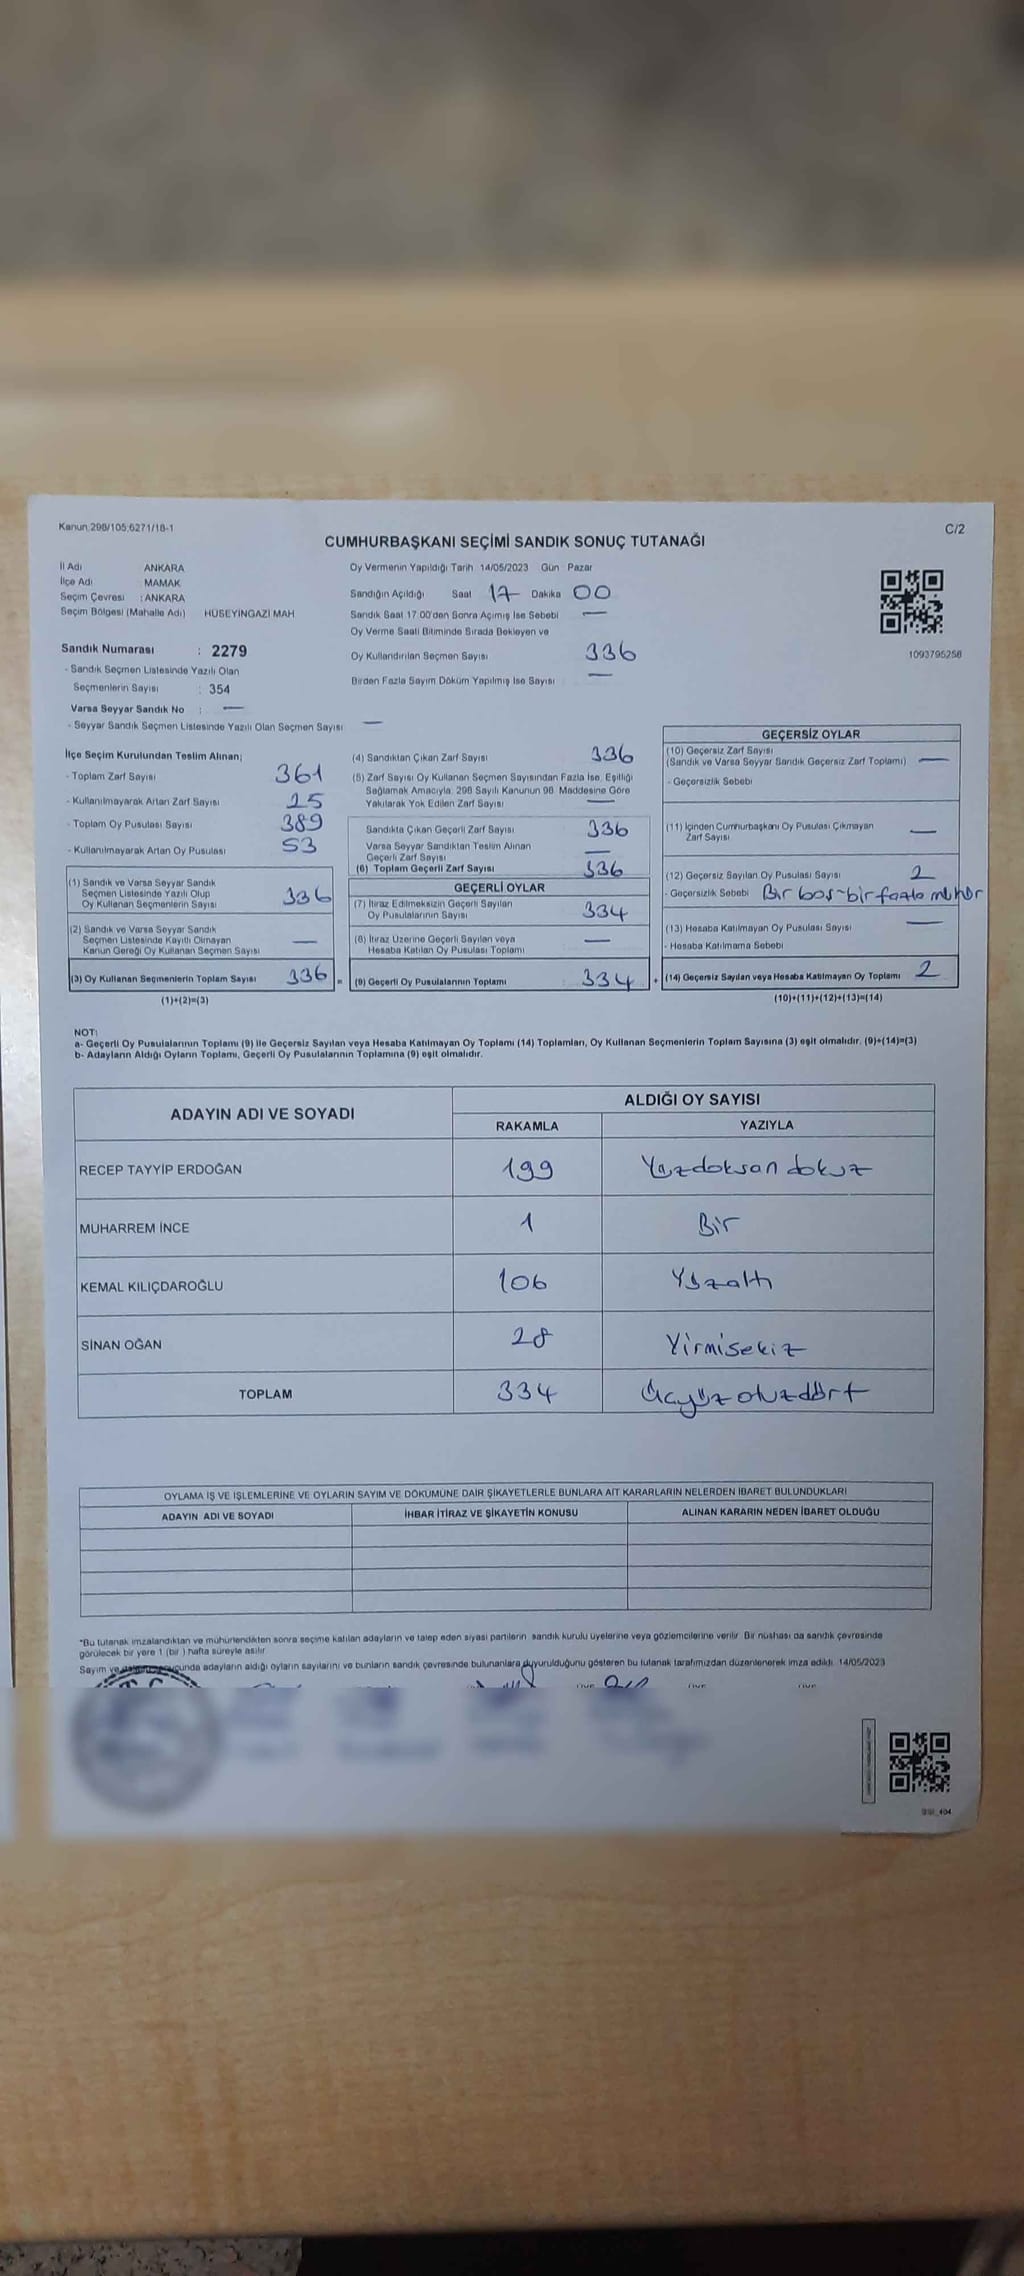 Kanun:298/105;6271/18-1
C/2
CUMHURBAŞKANI SEÇİMİ SANDIK SONUÇ TUTANAĞI
İl Adı ANKARA
İlçe Adı MAMAK
Seçim Çevresi : ANKARA
Seçim Bölgesi (Mahalle Adı) HÜSEYİNGAZİ MAH
Sandık Numarası : 2279
- Sandık Seçmen Listesinde Yazılı Olan
Seçmenlerin Sayısı : 354
Varsa Seyyar Sandık No : —
- Seyyar Sandık Seçmen Listesinde Yazılı Olan Seçmen Sayısı —
Oy Vermenin Yapıldığı Tarih 14/05/2023 Gün Pazar
Sandığın Açıldığı Saat 17 Dakika 00
Sandık Saat 17.00'den Sonra Açılmış İse Sebebi —
Oy Verme Saati Bitiminde Sırada Bekleyen ve
Oy Kullandırılan Seçmen Sayısı 336
Birden Fazla Sayım Döküm Yapılmış İse Sayısı —
1093795258
İlçe Seçim Kurulundan Teslim Alınan;
- Toplam Zarf Sayısı 361
- Kullanılmayarak Artan Zarf Sayısı 25
- Toplam Oy Pusulası Sayısı 389
- Kullanılmayarak Artan Oy Pusulası 53
(1) Sandık ve Varsa Seyyar Sandık
Seçmen Listesinde Yazılı Olup
Oy Kullanan Seçmenlerin Sayısı 336
(2) Sandık ve Varsa Seyyar Sandık
Seçmen Listesinde Kayıtlı Olmayan
Kanun Gereği Oy Kullanan Seçmen Sayısı —
(3) Oy Kullanan Seçmenlerin Toplam Sayısı 336 =
(1)+(2)=(3)
(4) Sandıktan Çıkan Zarf Sayısı 336
(5) Zarf Sayısı Oy Kullanan Seçmen Sayısından Fazla İse, Eşitliği
Sağlamak Amacıyla, 298 Sayılı Kanunun 98. Maddesine Göre
Yakılarak Yok Edilen Zarf Sayısı —
Sandıkta Çıkan Geçerli Zarf Sayısı 336
Varsa Seyyar Sandıktan Teslim Alınan
Geçerli Zarf Sayısı —
(6) Toplam Geçerli Zarf Sayısı 336
GEÇERLİ OYLAR
(7) İtiraz Edilmeksizin Geçerli Sayılan
Oy Pusulalarının Sayısı 334
(8) İtiraz Üzerine Geçerli Sayılan veya
Hesaba Katılan Oy Pusulası Toplamı —
(9) Geçerli Oy Pusulalarının Toplamı : 334 +
GEÇERSİZ OYLAR
(10) Geçersiz Zarf Sayısı
(Sandık ve Varsa Seyyar Sandık Geçersiz Zarf Toplamı) —
- Geçersizlik Sebebi
(11) İçinden Cumhurbaşkanı Oy Pusulası Çıkmayan
Zarf Sayısı —
(12) Geçersiz Sayılan Oy Pusulası Sayısı 2
- Geçersizlik Sebebi Bir boş-bir fazla mühür
(13) Hesaba Katılmayan Oy Pusulası Sayısı —
- Hesaba Katılmama Sebebi
(14) Geçersiz Sayılan veya Hesaba Katılmayan Oy Toplamı 2
(10)+(11)+(12)+(13)=(14)
NOT:
a- Geçerli Oy Pusulalarının Toplamı (9) ile Geçersiz Sayılan veya Hesaba Katılmayan Oy Toplamı (14) Toplamları, Oy Kullanan Seçmenlerin Toplam Sayısına (3) eşit olmalıdır. (9)+(14)=(3)
b- Adayların Aldığı Oyların Toplamı, Geçerli Oy Pusulalarının Toplamına (9) eşit olmalıdır.
ADAYIN ADI VE SOYADI
ALDIĞI OY SAYISI
RAKAMLA YAZIYLA
RECEP TAYYİP ERDOĞAN 199 Yüzdoksan dokuz
MUHARREM İNCE 1 Bir
KEMAL KILIÇDAROĞLU 106 Yüzaltı
SİNAN OĞAN 28 Yirmisekiz
TOPLAM 334 Üçyüzotuzdört
OYLAMA İŞ VE İŞLEMLERİNE VE OYLARIN SAYIM VE DÖKÜMÜNE DAİR ŞİKAYETLERLE BUNLARA AİT KARARLARIN NELERDEN İBARET BULUNDUKLARI
ADAYIN ADI VE SOYADI İHBAR İTİRAZ VE ŞİKAYETİN KONUSU ALINAN KARARIN NEDEN İBARET OLDUĞU
*Bu tutanak imzalandıktan ve mühürlendikten sonra seçime katılan adayların ve talep eden siyasi partilerin sandık kurulu üyelerine veya gözlemcilerine verilir. Bir nüshası da sandık çevresinde
görülecek bir yere 1 (bir) hafta süreyle asılır.
Sayım ve adayların aldığı oyların sayılarını ve bunların sandık çevresinde bulunanlara duyurulduğunu gösteren bu tutanak tarafımızdan düzenlenerek imza edildi. 14/05/2023